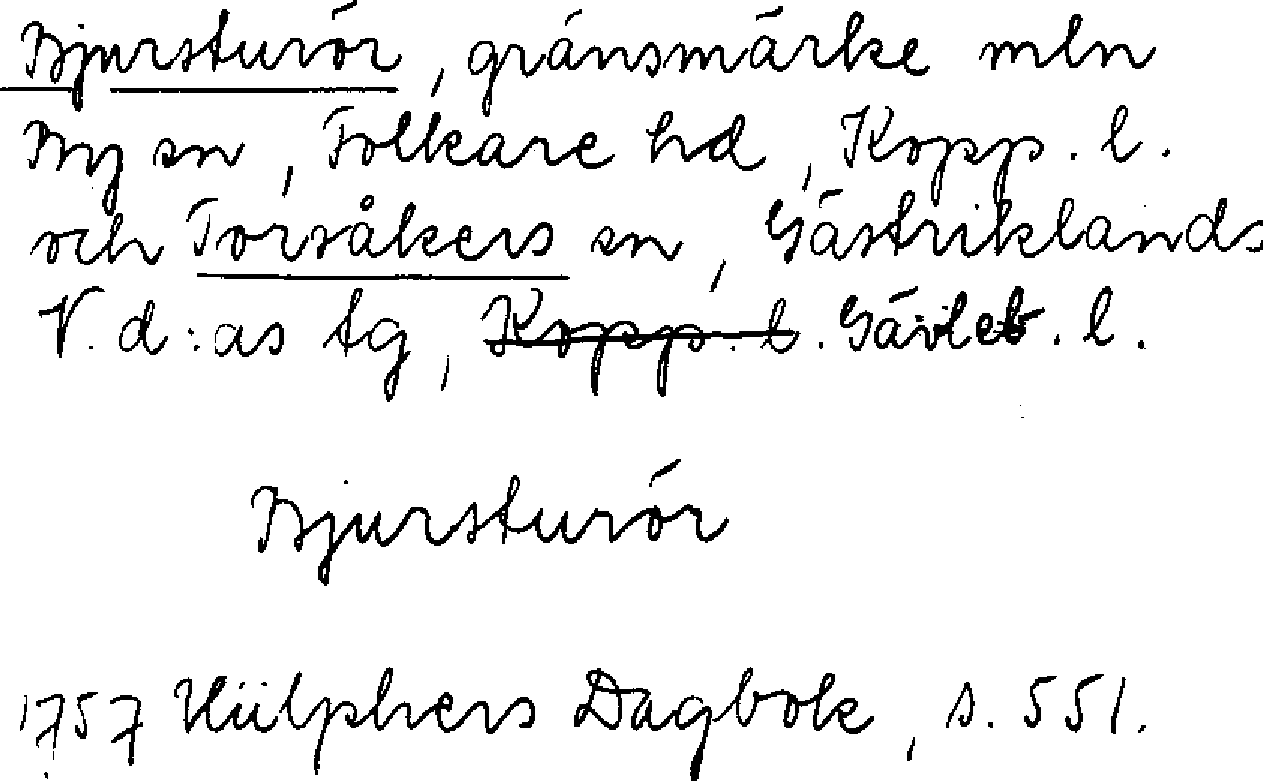 Bjursturör, gränsmärke mln
By sn, Folkare hd, Kopp. l.
och Torsåkers sn, Gästriklands
V. d:as tg, Kopp. l. Gävleb. l.
Bjursturör
1757 Hülphers Dagbok, s. 551.